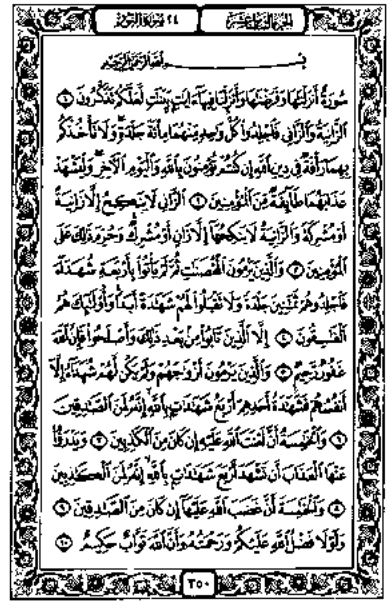 الجزء الثامن عشر ٢٤ سورة النور
بسم الله الرحمن الرحيم
سورة أنزلناها وفرضناها وأنزلنا فيها آيات بينات لعلكم تذكرون ١
الزانية والزاني فاجلدوا كل واحد منهما مائة جلدة ولا تأخذكم
بهما رأفة في دين الله إن كنتم تؤمنون بالله واليوم الآخر وليشهد
عذابهما طائفة من المؤمنين ٢ الزاني لا ينكح إلا زانية
أو مشركة والزانية لا ينكحها إلا زان أو مشرك وحرم ذلك على
المؤمنين ٣ والذين يرمون المحصنات ثم لم يأتوا بأربعة شهداء
فاجلدوهم ثمانين جلدة ولا تقبلوا لهم شهادة أبدا وأولئك هم
الفاسقون ٤ إلا الذين تابوا من بعد ذلك وأصلحوا فإن الله
غفور رحيم ٥ والذين يرمون أزواجهم ولم يكن لهم شهداء إلا
أنفسهم فشهادة أحدهم أربع شهادات بالله إنه لمن الصادقين
٦ والخامسة أن لعنت الله عليه إن كان من الكاذبين ٧ ويدرؤا
عنها العذاب أن تشهد أربع شهادات بالله إنه لمن الكاذبين
٨ والخامسة أن غضب الله عليها إن كان من الصادقين ٩
ولولا فضل الله عليكم ورحمته وأن الله تواب حكيم ١٠
٣٥٠